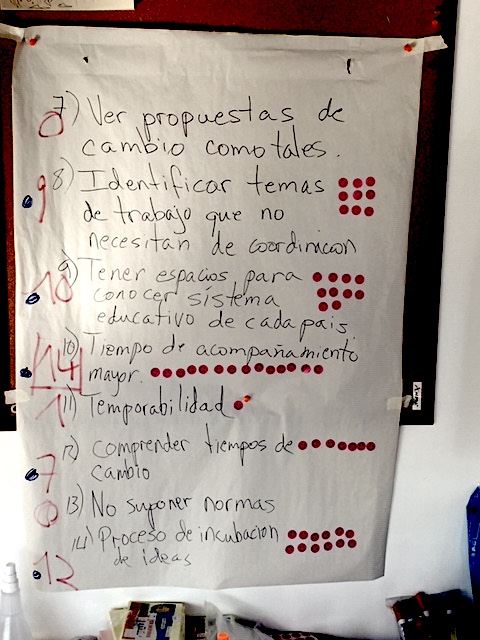 7) Ver propuestas de
0 cambio como tales.
8) Identificar temas
9 de trabajo que no
necesitan de coordinicion
9) Tener espacios para
10 conocer sistema
educativo de cada pais.
10) Tiempo de acompañamiento
14 mayor.
1 11) Temporabilidad
12) Comprender tiempos de
7 cambio
0 13) No suponer normas
14) Proceso de incubacion
12 de ideas